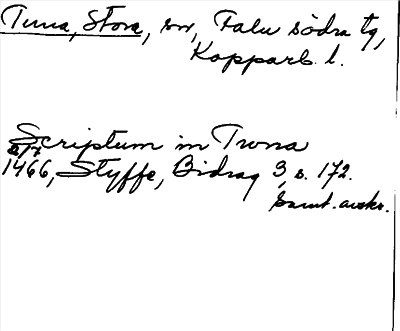 Tuna, Stora, sn, Falu södra tg,
Kopparb. l.
Scriptum in Twna
2/7
1466, Styffe, Bidrag 3, s. 172.
Samt. avskr.